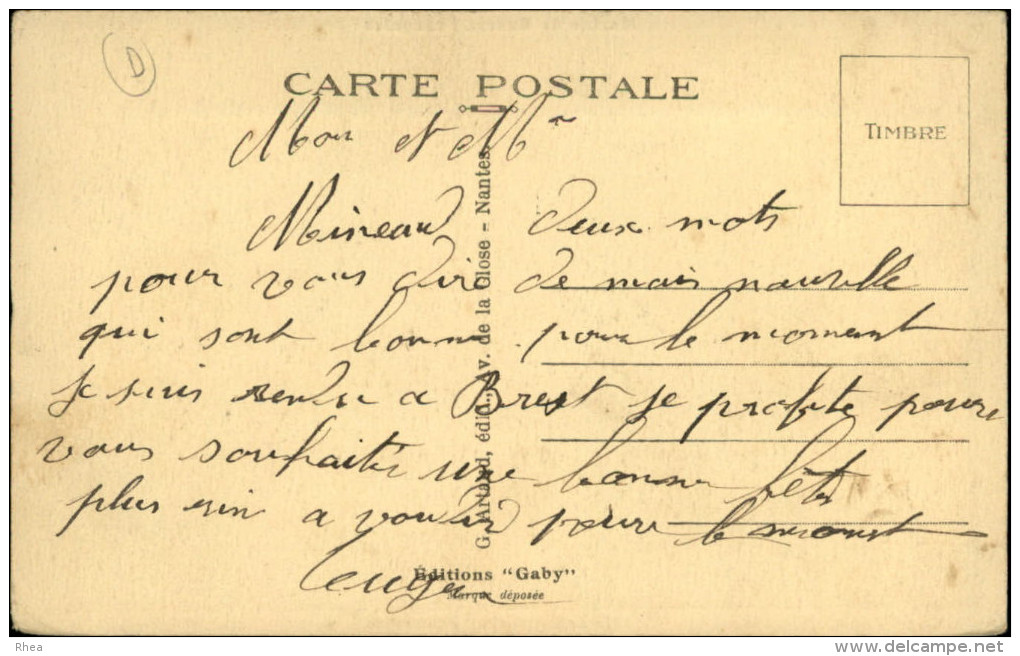 D
CARTE POSTALE
TIMBRE
Mon et Mm
Mineau deux mots
pour vous dire de mais nouvelle
qui sont bonne pour le moment
Je suis rendu a Brest je profite pour
vous souhaiter une bonne fêtes
plus rien a vouloir pour le moment
G. Artaud, édit., Av. de la Close - Nantes
Éditions "Gaby"
Marque déposée
Rhea
www.delcampe.net